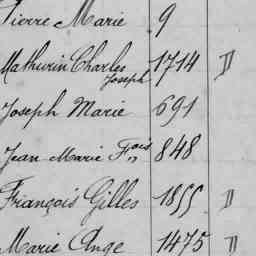 Pierre Marie 9
Mathurin Charles Joseph 1714 D
Joseph Marie 691
Jean Marie Fois 848
François Gilles 1855 D
Marie Ange 1475 D